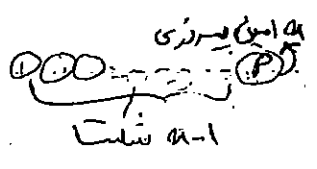 n امین پیروزی
P
n-1 شکست